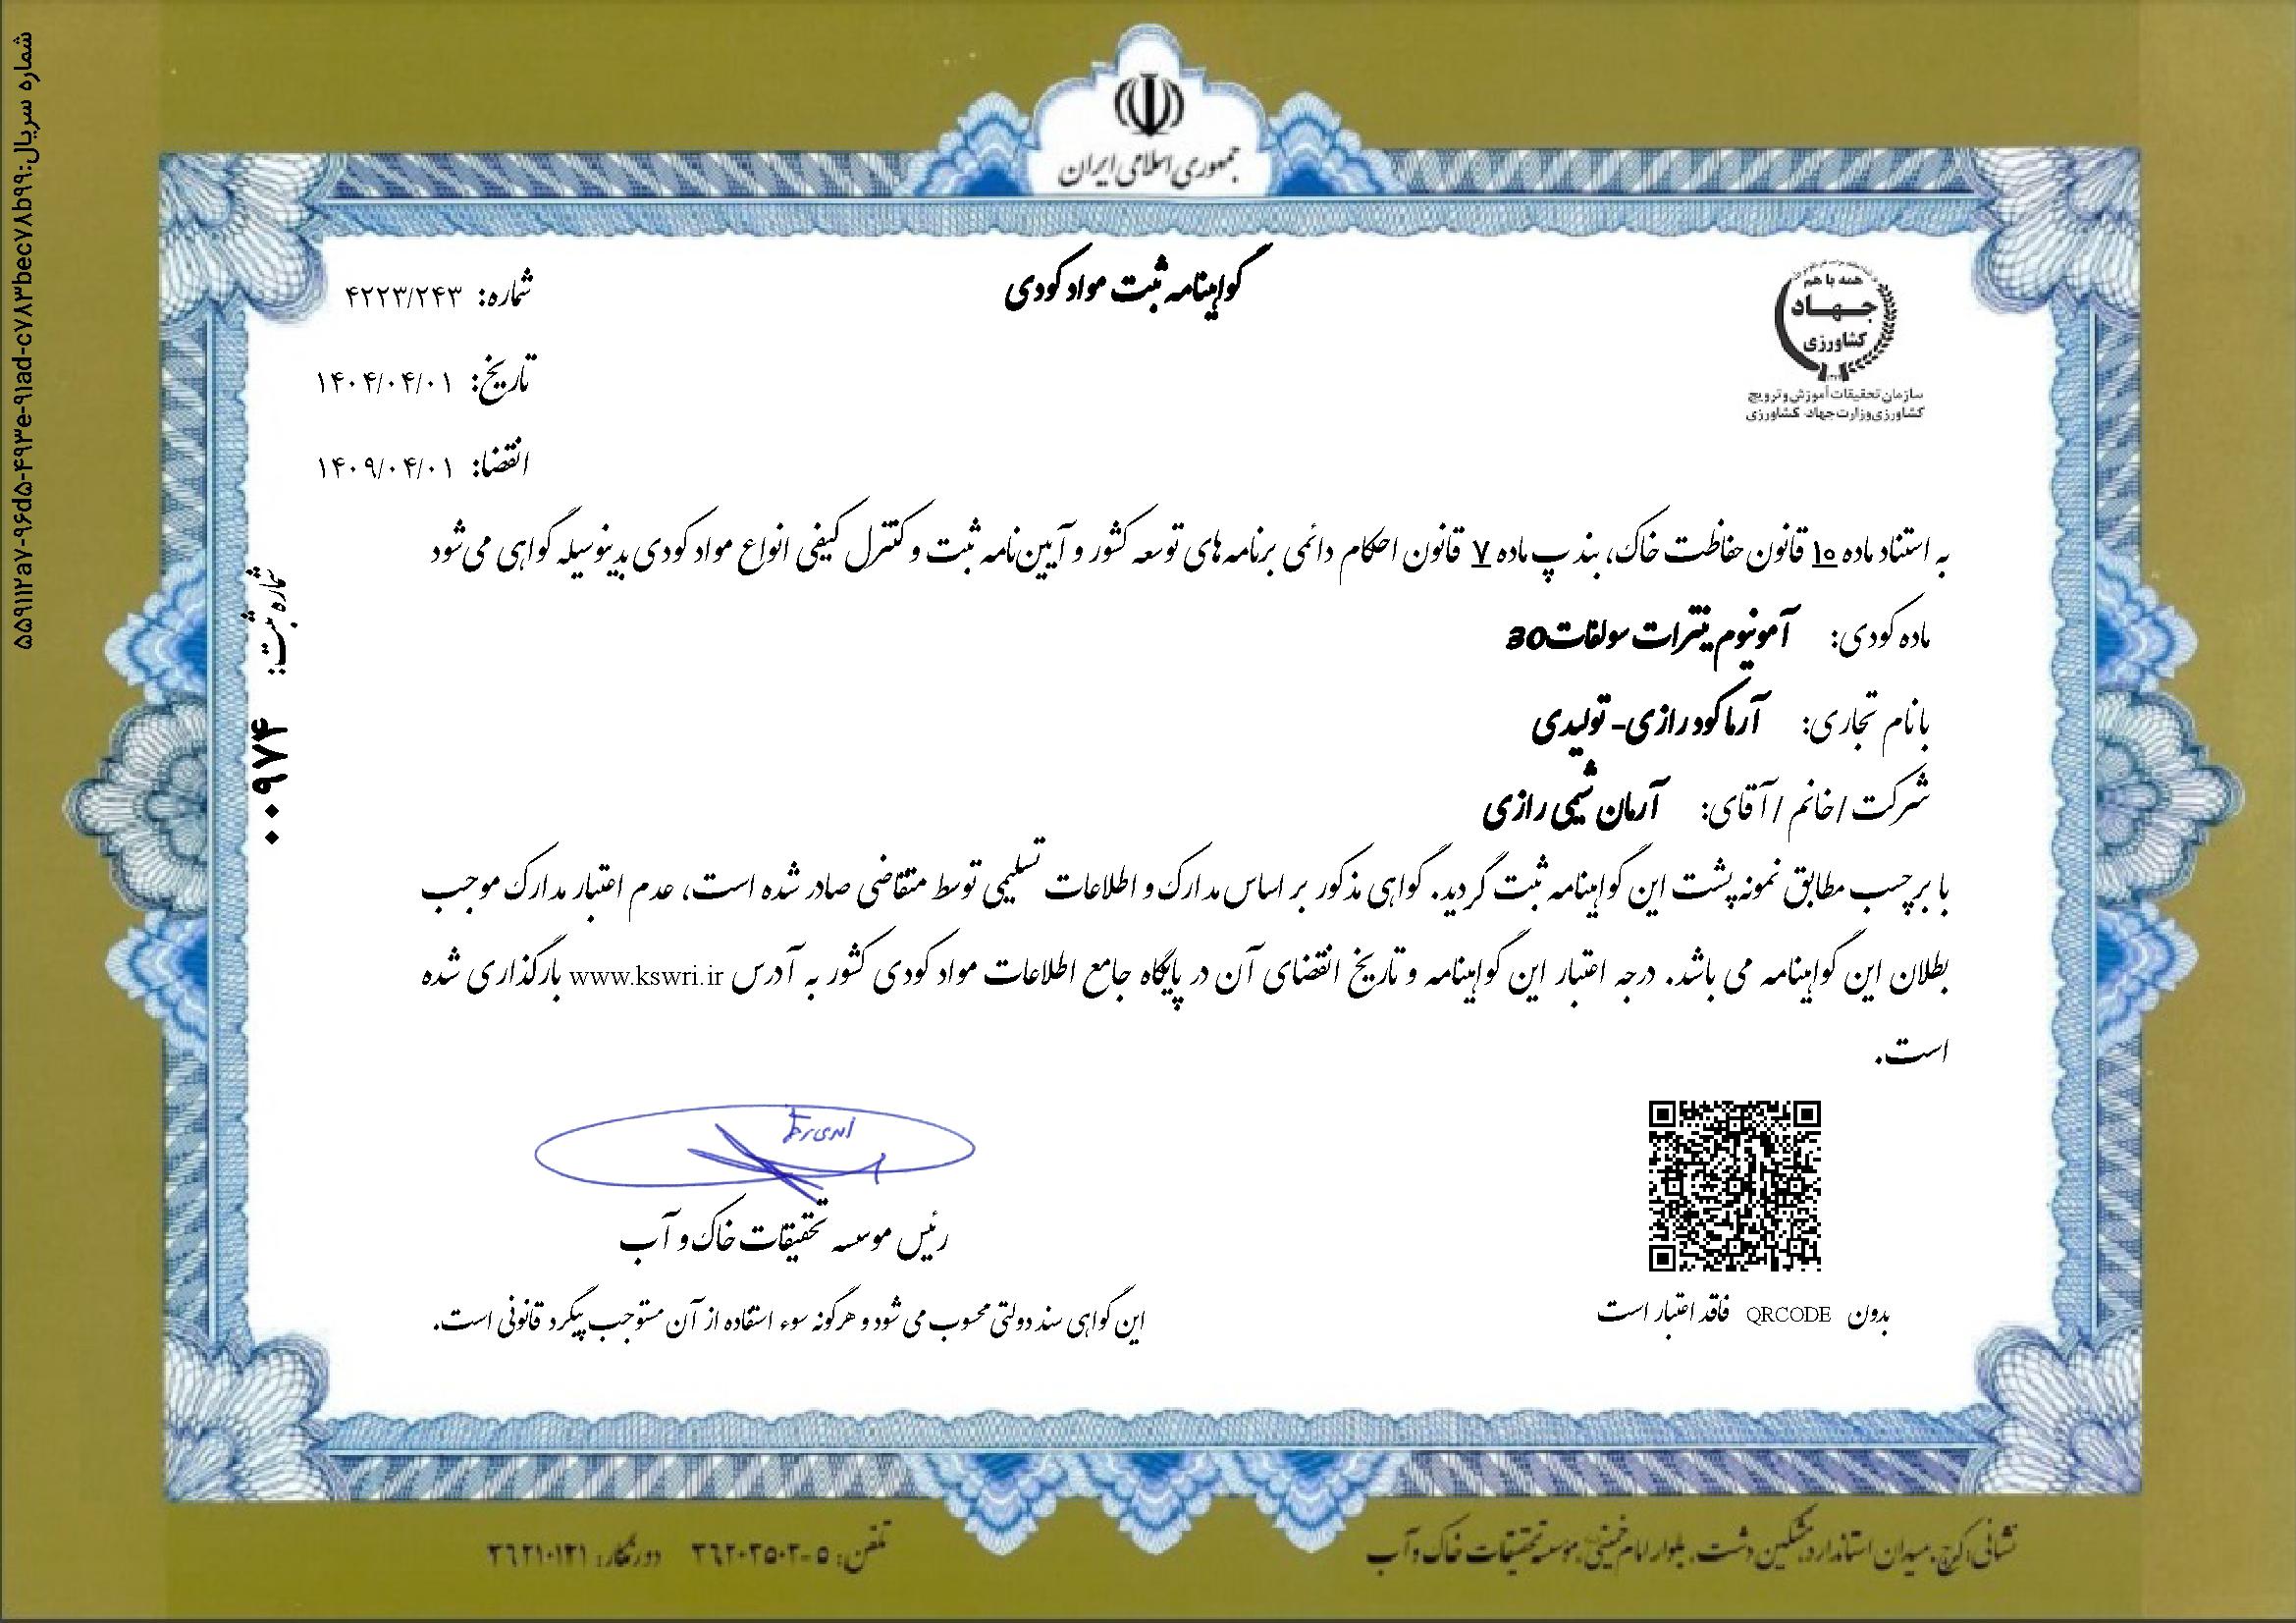 جمهوری اسلامی ایران
گواهینامه ثبت مواد کودی
همه با هم
جهاد
کشاورزی
سازمان تحقیقات آموزش و ترویج
کشاورزی وزارت جهاد کشاورزی
شماره: ۴۲۲۳/۲۴۳
تاریخ: ۱۴۰۴/۰۴/۰۱
انقضا: ۱۴۰۹/۰۴/۰۱
به استناد ماده ۱۰ قانون حفاظت خاک، بند پ ماده ۷ قانون احکام دائمی برنامه های توسعه کشور و آیین نامه ثبت و کنترل کیفی انواع مواد کودی بدینوسیله گواهی می شود
ماده کودی: آمونیوم نیترات سولفات30
با نام تجاری: آرما کود رازی- تولیدی
شرکت / خانم / آقای: آرمان شیمی رازی
با برچسب مطابق نمونه پشت این گواهینامه ثبت گردید. گواهی مذکور بر اساس مدارک و اطلاعات تسلیمی توسط متقاضی صادر شده است، عدم اعتبار مدارک موجب
بطلان این گواهینامه می باشد. درجه اعتبار این گواهینامه و تاریخ انقضای آن در پایگاه جامع اطلاعات مواد کودی کشور به آدرس www.kswri.ir بارگذاری شده
است.
رئیس موسسه تحقیقات خاک و آب
بدون QRCODE فاقد اعتبار است
این گواهی سند دولتی محسوب می شود و هرگونه سوء استفاده از آن مستوجب پیگرد قانونی است.
نشانی: کرج. میدان استاندارد، مشکین دشت، بلوار امام خمینی، موسسه تحقیقات خاک و آب
تلفن: ۵-۳۶۲۰۲۵۰۲ دورنگار: ۳۶۲۱۰۱۲۱
شماره ثبت: ۰۰۹۷۴
شماره سریال:۵۵۹۱۱۲a۷-۹۶d۵-۴۹۳e-۹۱ad-c۷۸۳bec۷۸b۹۹